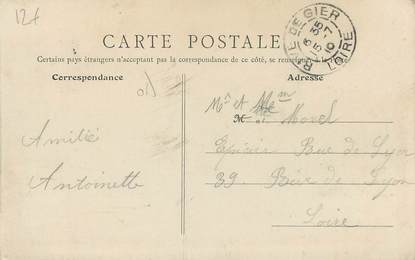 12f
CARTE POSTALE
Certains pays étrangers n'acceptant pas la correspondance de ce côté, se renseigner à la Poste
Correspondance
Adresse
RIVE DE GIER
LOIRE
Mr et Mem
M Morel
Epicier Rue de Lyon
39. Rue de Lyon
Loire
Amitiés
Antoinette